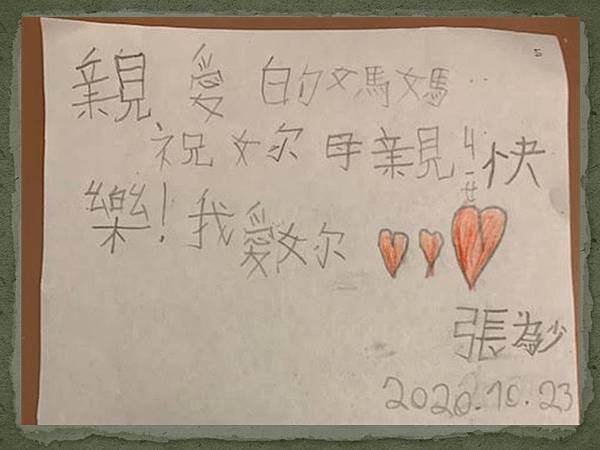 親愛的媽媽:
祝妳母親ㄐㄧㄝ快
樂!我愛妳
張為少
2020.10.23